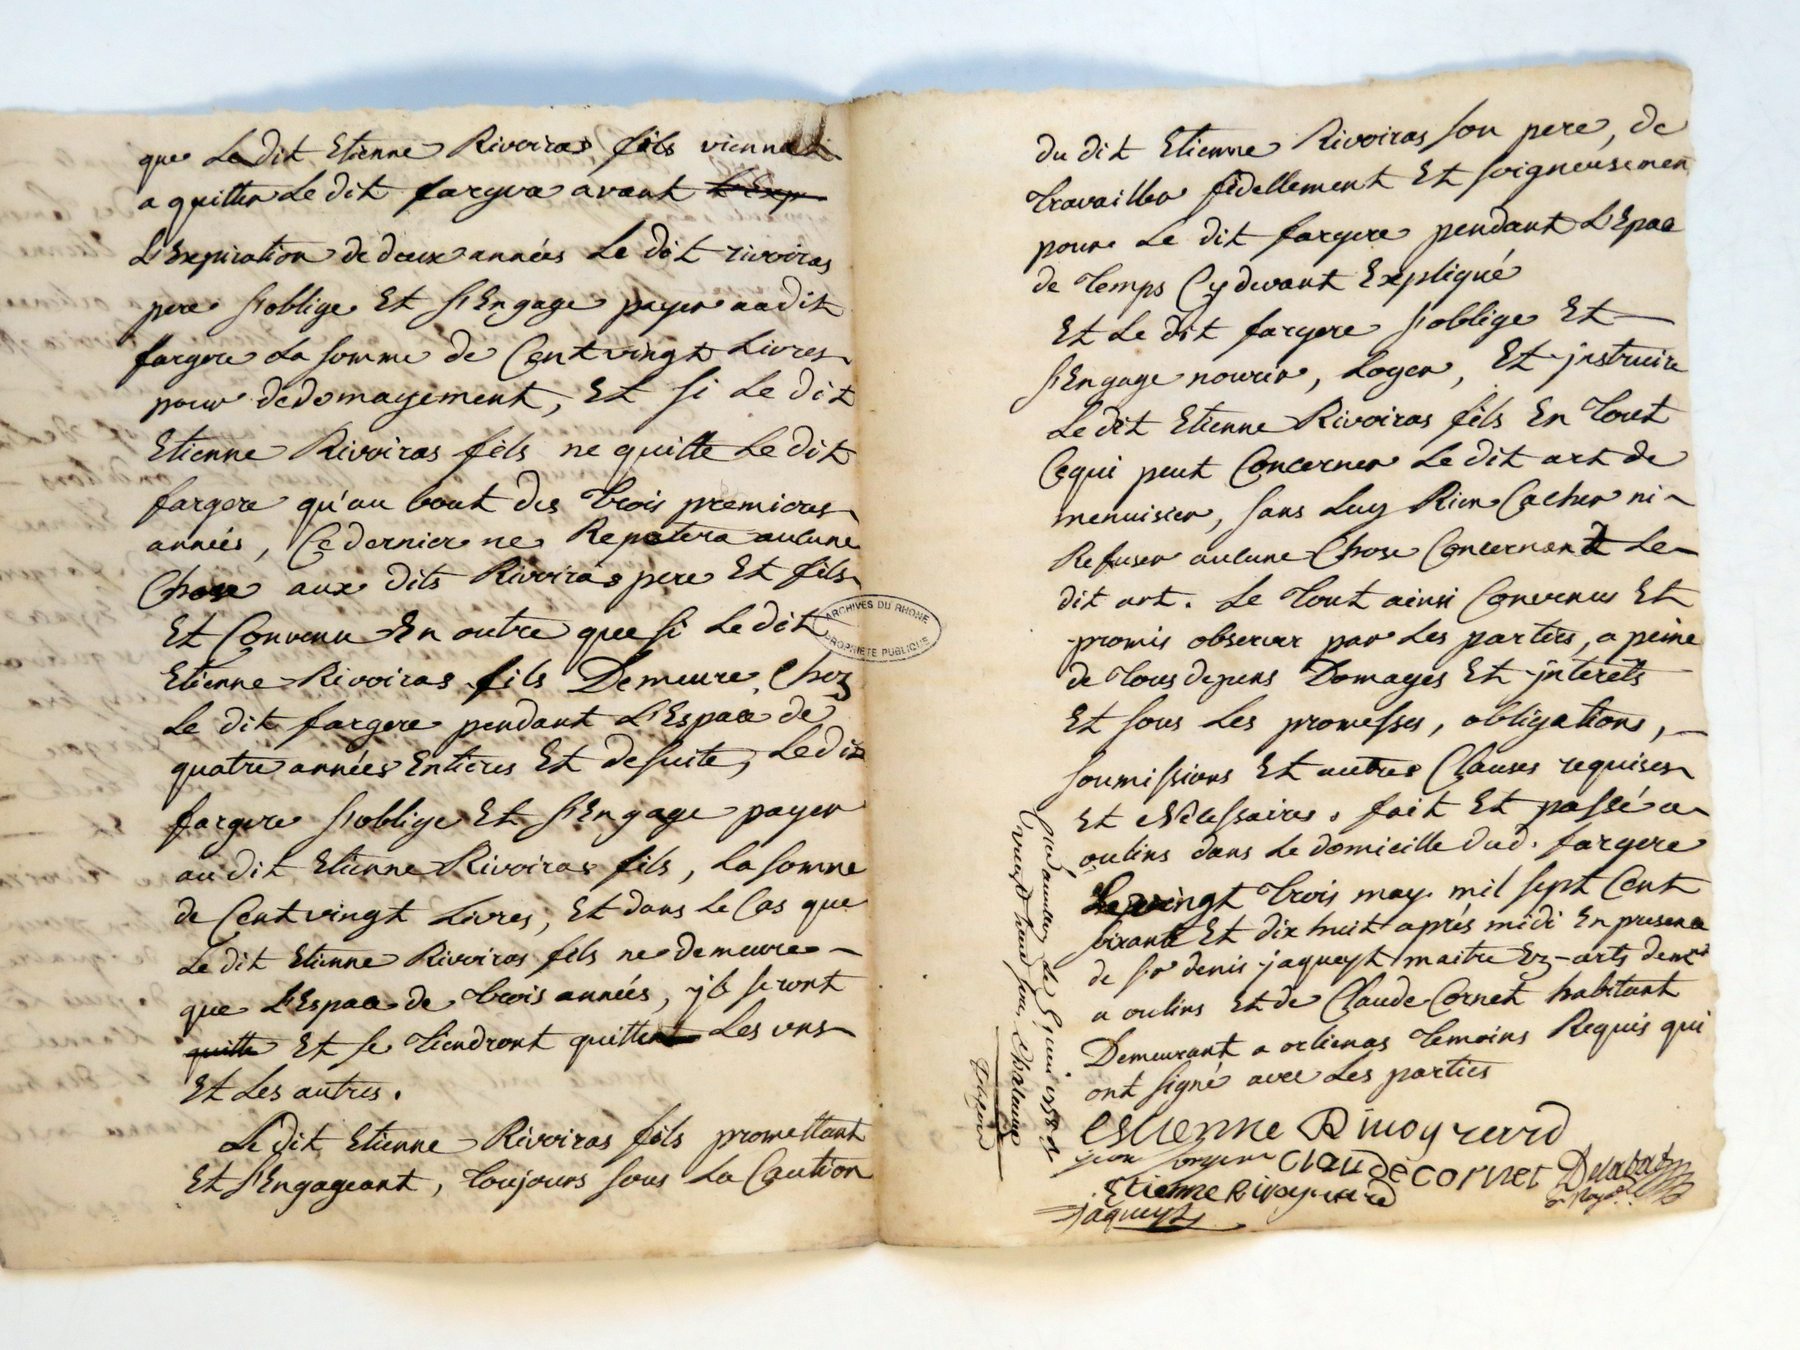 que Le dit Etienne Rivoiras fils vienne
a quitter Le dit fargere avant L'Exp
L'Expiration de deux années Le dit rivoiras
pere s'oblige Et s'Engage payer audit
fargere La somme de Cent vingt Livres
pour dedomagement, Et si Le dit
Etienne Rivoiras fils ne quitte Le dit
fargere qu'au bout des trois premieres
années, Ce dernier ne Repetera aucune
Chose aux dits Rivoiras pere Et fils
Et Convenu En outre que si Le dit
Etienne Rivoiras fils Demeure Chez
Le dit fargere pendant L'Espace de
quatre années Entieres Et de suite, Le dit
fargere s'oblige Et s'Engage payer
au dit Etienne Rivoiras fils, La somme
de Cent vingt Livres, Et dans Le Cas que
Le dit Etienne Rivoiras fils ne demeure
que L'Espace de trois années, jls seront
quitte Et se tiendront quittent Les uns
Et Les autres.
Le dit Etienne Rivoiras fils promettant
Et s'Engageant, toujours sous La Caution
ARCHIVES DU RHONE
PROPRIETE PUBLIQUE
du dit Etienne Rivoiras son pere, de
travailler fidellement Et soigneusemen
pour Le dit fargere pendant L'Epace
de temps Cy devant Expliqué
Et Le dit fargere s'oblige Et
s'Engage nourir, Loger, Et jnstruire
Le dit Etienne Rivoiras fils En tout
Ce qui peut Concerner Le dit art de
menuisier, sans Luy Rien Cacher ni
Refuser aucune Chose Concernant Le
dit art. Le tout ainsi Convenus Et
promis observer par Les parties, a peine
de tous depens Domages Et jnterets
Et sous Les promesses, obligations,
soumissions Et autres Clauses requises
Et Nécessaires. fait Et passé a
oulins dans Le domicille dud. fargere
Le vingt trois may mil sept Cent
soixante Et dix huit après midi En presence
de sr denis jaqueyt maitre Ez-arts demt
a oulins Et de Claude Cornet habitant
Demeurant a orlienas temoins Requis qui
ont signé avec Les parties
Estienne Rivoyrard
jean fargere Claude cornet Delabat
Etienne Rivoyrard
jaqueyt